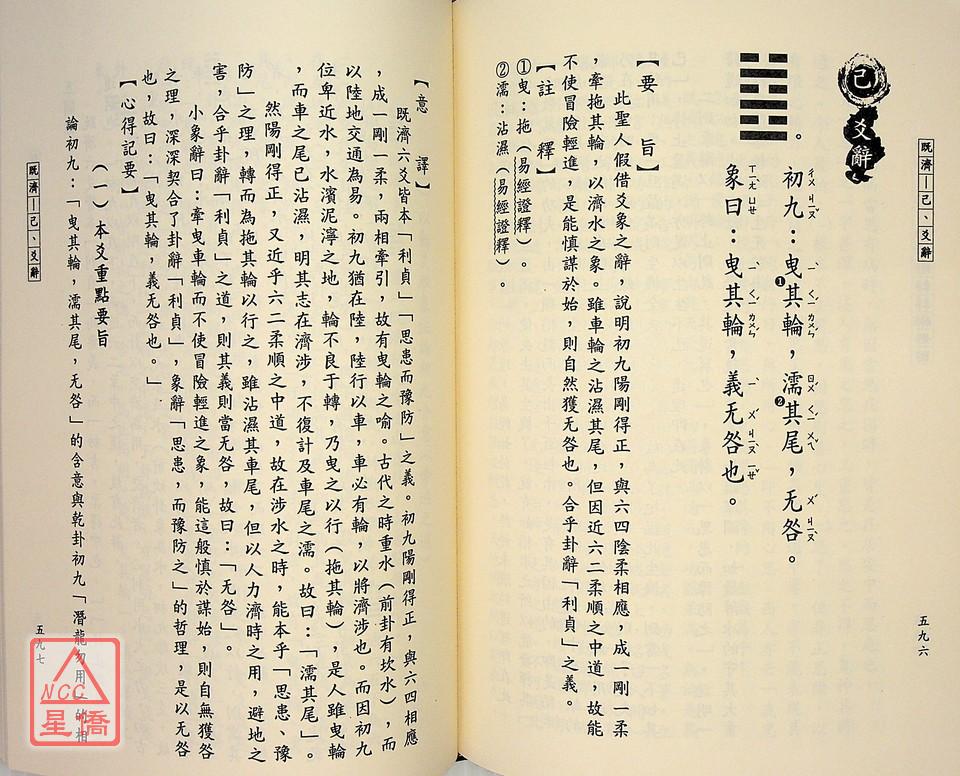 既濟—己、爻辭
己爻辭
初九：曳①其輪，濡②其尾，无咎。
象曰：曳其輪，義无咎也。
【要旨】
此聖人假借爻象之辭，說明初九陽剛得正，與六四陰柔相應，成一剛一柔
，牽拖其輪，以濟水之象。雖車輪之沾濕其尾，但因近六二柔順之中道，故能
不使冒險輕進，是能慎謀於始，則自然獲无咎也。合乎卦辭「利貞」之義。
【註釋】
①曳：拖（易經證釋）。
②濡：沾濕（易經證釋）。
五九六
【意譯】
既濟六爻皆本「利貞」「思患而豫防」之義。初九陽剛得正，與六四相應
，成一剛一柔，兩相牽引，故有曳輪之喻。古代之時重水（前卦有坎水），而
以陸地交通為易。初九猶在陸，陸行以車，車必有輪，以將濟涉也。而因初九
位卑近水，水濱泥濘之地，輪不良于轉，乃曳之以行（拖其輪），是人雖曳輪
，而車之尾已沾濕，明其志在濟涉，不復計及車尾之濡。故曰：「濡其尾」。
然陽剛得正，又近乎六二柔順之中道，故在涉水之時，能本乎「思患、豫
防」之理，轉而為拖其輪以行之，雖沾濕其車尾，但以人力濟時之用，避地之
害，合乎卦辭「利貞」之道，則其義則當无咎，故曰：「无咎」。
小象辭曰：牽曳車輪而不使冒險輕進之象，能這般慎於謀始，則自無獲咎
之理，深深契合了卦辭「利貞」，象辭「思患，而豫防之」的哲理，是以无咎
也，故曰：「曳其輪，義无咎也。」
【心得記要】
（一）本爻重點要旨
論初九：「曳其輪，濡其尾，无咎」的含意與乾卦初九「潛龍勿用」的相
既濟—己、爻辭
五九七
NCC
星僑